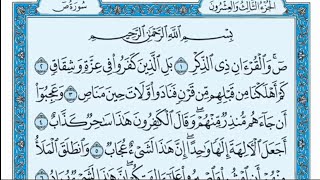 الجزء الثالث والعشرون
سورة ص
بِسْمِ اللَّهِ الرَّحْمَٰنِ الرَّحِيمِ
صٓ وَالْقُرْءَانِ ذِي الذِّكْرِ ١ بَلِ الَّذِينَ كَفَرُوا فِي عِزَّةٍ وَشِقَاقٍ ٢
كَمْ أَهْلَكْنَا مِن قَبْلِهِم مِّن قَرْنٍ فَنَادَوا وَّلَاتَ حِينَ مَنَاصٍ ٣ وَعَجِبُوا
أَن جَاءَهُم مُّنذِرٌ مِّنْهُمْ وَقَالَ الْكَٰفِرُونَ هَٰذَا سَٰحِرٌ كَذَّابٌ ٤
أَجَعَلَ الْآلِهَةَ إِلَٰهًا وَٰحِدًا إِنَّ هَٰذَا لَشَيْءٌ عُجَابٌ ٥ وَانطَلَقَ الْمَلَأُ